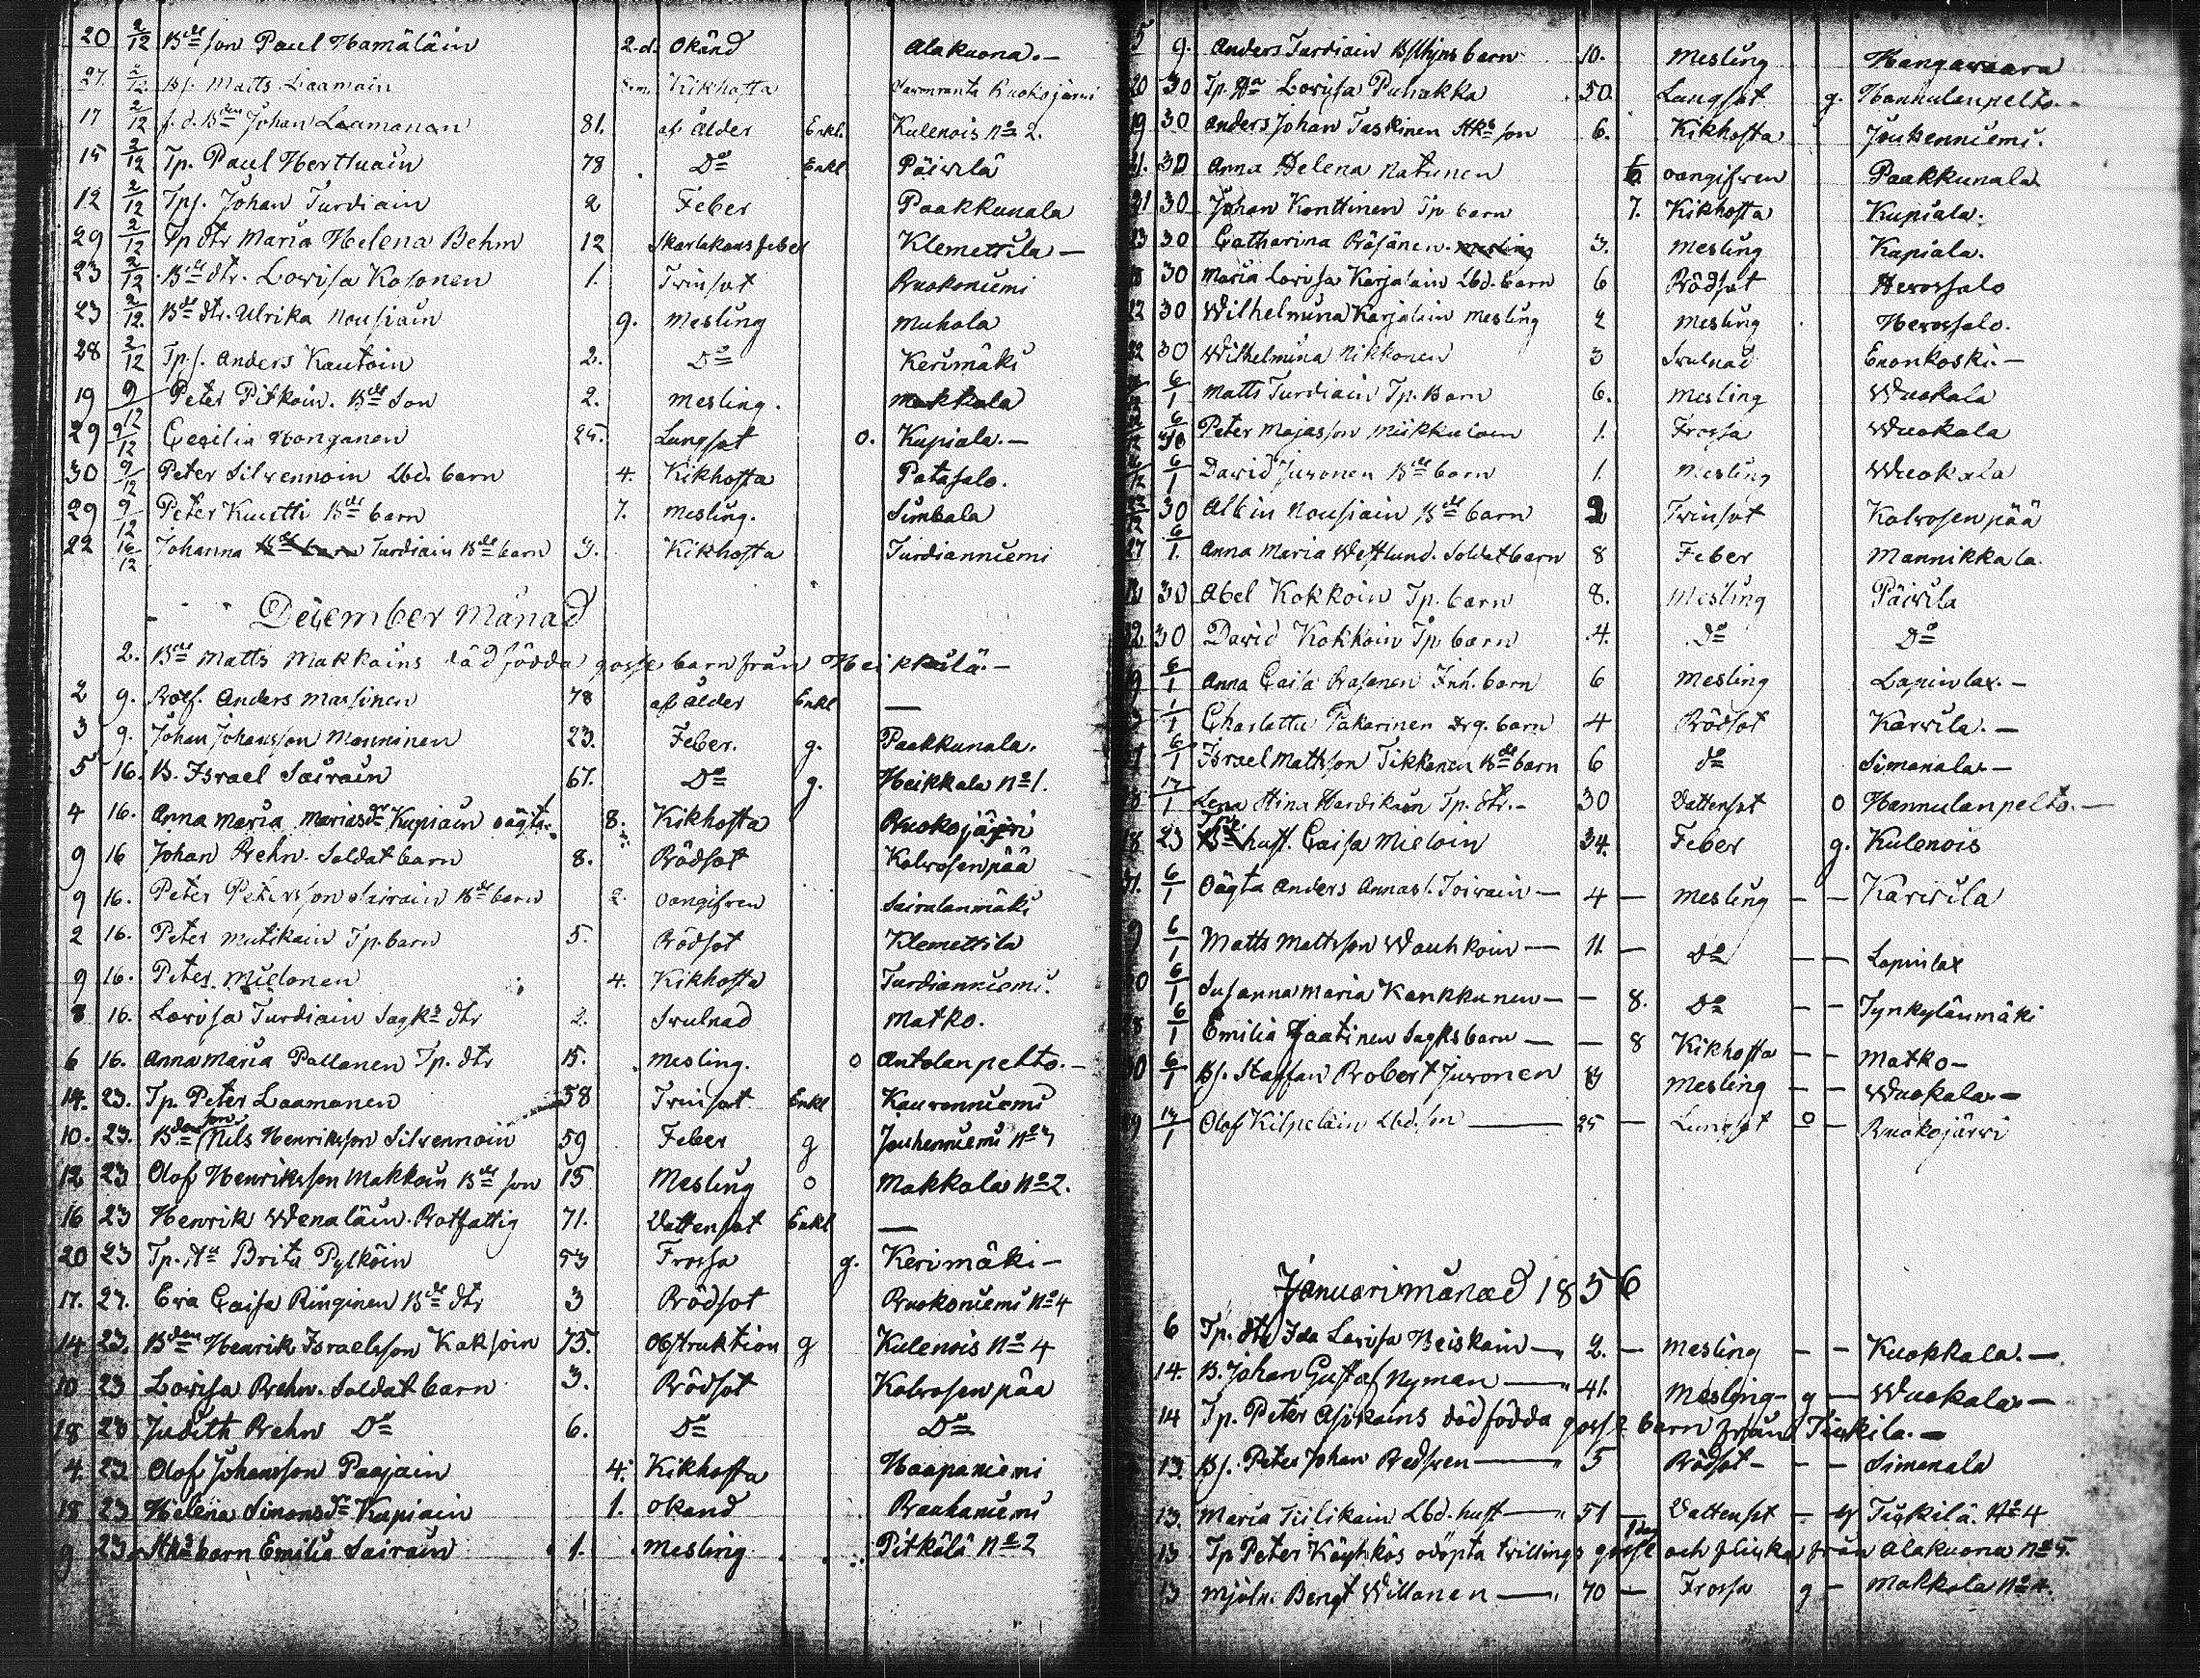 20 2/12 Bde son Paul Hämäläin 2.d. Okänd Alakuona.—
27. 2/12 Bs. Matts Laamain Kikhosta Ruokojärvi
17 2/12 f.d. Bden Johan Laamanen 81. af ålder Enkl. Kulenois No 2.
15 2/12 Tp. Paul Herttuain 78 Do Enkl Päivilä
12 2/12 Tps. Johan Turdiain 2 Feber Paakkunala
29 2/12 Tp dtr Maria Helena Behm 12 Skarlakansfeber Klemettila—
23 2/12 Bde dtr. Lovisa Kosonen 1. Tvinsot Ruokoniemi
23 2/12. Bde dtr. Ulrika Nousiain 9. Mesling Muhola
28 2/12 Tp.s. Anders Kautoin 2. Do Kerimäki
19 9/12 Peter Pitkoin. Bde Son 2. Mesling. Makkala
29 9/12 Cecilia Hanganen 25. Lungsot o. Kupiala.—
30 9/12 Peter Silvennoin Lbd. barn 4. Kikhosta Patasalo.
29 9/12 Peter Kuitti Bde barn 7. Mesling. Simbala
22 16/12 Johanna Turdiain Bde barn 3. Kikhosta Turdianniemi
December Månad
2. Bde Matts Makkoins död födda gosse barn från Heikkilä.—
2 9. Rotf. Anders Massinen 78 af ålder Enkl —
3 9. Johan Johansson Manninen 23. Feber. g. Paakkunala.
5 16. B. Israel Sairain 67. Do g. Heikkala No 1.
4 16. Anna Maria Mariasdr Kupiain oägta. 8. Kikhosta Ruokojärvi
9 16 Johan Rehn. Soldat barn 8. Rödsot Kolvosenpää
9 16. Peter Petersson Sairain Bde barn 2. oangifven Sairalanmäki
2 16. Peter Mutikain Tp. barn 5. Rödsot Klemettila
9 16. Peter Mielonen 4. Kikhosta Turdianniemi.
8 16. Lovisa Turdiain Sagks dtr 2. Svulnad Matko.
6 16. Anna Maria Pallanen Tp. dtr 15. Mesling. o Antolanpelto.—
14. 23. Tp. Peter Laamanen 58 Tvinsot Enkl Kauvanniemi
10. 23. Bde son Nils Henriksson Silvennoin 59 Feber g Jouhenniemi No 3
12 23 Olof Henriksson Makkoin Bde son 15 Mesling o Makkola No 2.
16 23 Henrik Wenäläin. Rotfattig 71. Vattensot Enkl —
20 23 Tp. Aa Brita Pylköin 53 Frossa g. Kerimäki—
17. 27. Eva Caisa Ringinen Bde dtr 3 Rödsot Ruokoniemi No 4
14 23. Bden Henrik Israelsson Kaksoin 75. Obstruktion g Kulenois No 4
10 23 Lovisa Rehn. Soldat barn 3. Rödsot Kolvosenpää
18 23 Judith Rehn Do 6. Do Do
4. 23 Olof Johansson Paajain 4. Kikhosta Haapaniemi
18 23 Helena Simonsdr Kupiain 1. okänd Rauhaniemi
9 23. barn Emilia Sairain 1. Mesling Pitkälä No 2
5 9. Anders Turdiain barn 10. Mesling Hangasvaara
20 30 Tp. Aa Lovisa Puhakka 50. Lungsot g. Hannulanpelto.—
19 30 Anders Johan Taskinen son 6. Kikhosta Joukenniemi.
21. 30 Anna Helena Natunen 6. oangifven Paakkunala
21 30 Johan Konttinen Tp barn 7. Kikhosta Kupiala.
23 30 Catharina Räsänen. 3. Mesling Kupiala.
18 30 Maria Lovisa Karjalain Lbd. barn 6 Rödsot Herossalo
22 30 Wilhelmina Karjalain Mesling 2 Mesling Herossalo.
22 30 Wilhelmina Nikkonen 3 Svulnad Enonkoski.—
6/1 Matts Turdiain Tp. Barn 6. Mesling Wuokala
6/1 Peter Majasson Miikkulain 1. Frossa Wuokala
6/1 David Juvonen Bde barn 1. Mesling Wuokala
30 Albin Nousiain Bde barn 2 Tvinsot Kolvosenpää
27 6/1. Anna Maria Westlund. Soldat barn 8 Feber Mannikkala.
30 Abel Kokkoin Tp. barn 8. Mesling Päivilä
22 30 David Kokkoin Tp. barn 4. Do Do
9 6/1 Anna Caisa Rasanen Inh. barn 6 Mesling Lapinlax.—
1/1 Charlotta Pakarinen Drg. barn 4 Rödsot Karvila.—
6/1 Israel Mattsson Tikkanen Bde barn 6 do Simanala—
8 17/1 Lena Stina Hardikain Tp. dtr.— 30 Vattensot o Hannulanpelto.—
18. 23 hust. Caisa Mieloin 34. Feber g. Kulenois
6/1 Oägta Anders Annas. Toivain— 4 — Mesling — — Karvila
9 6/1 Matts Mattsson Wauhkoin— 11 — Do — — Lapinlax
6/1 Susanna Maria Kankkunen— — 8. Do — — Tynkylänmäki
6/1 Emilia Jaatinen Sagks barn — — 8 Kikhosta — — Matko—
6/1 Bs. Staffan Robert Juvonen Mesling — — Wuokala—
Olof Kilpeläin Lbd. son — 25 — Lungsot — o — Ruokojärvi
Januari månad 1856
6 Tp. dtr Ida Lovisa Heiskain— 2. — Mesling — — Kuokkala.—
14. B. Johan Gustaf Nyman — 41. Mesling— g — Wuokala—
14 Tp. Peter Asikains död födda gosse barn från Tiukila.—
13. Bs. Peter Johan Redsven — 5 Rödsot — — — Simanala
13. Maria Tiilikain Lbd. hust — 51 — Vattensot — g Tiukilä No 4
13 Tp Peter Käyhkös odöpta tvillings gosse och flicka från Alakuona No 5.
13 Mjöln. Bengt Willanen — 70 — Frossa g — Makkola No 4.